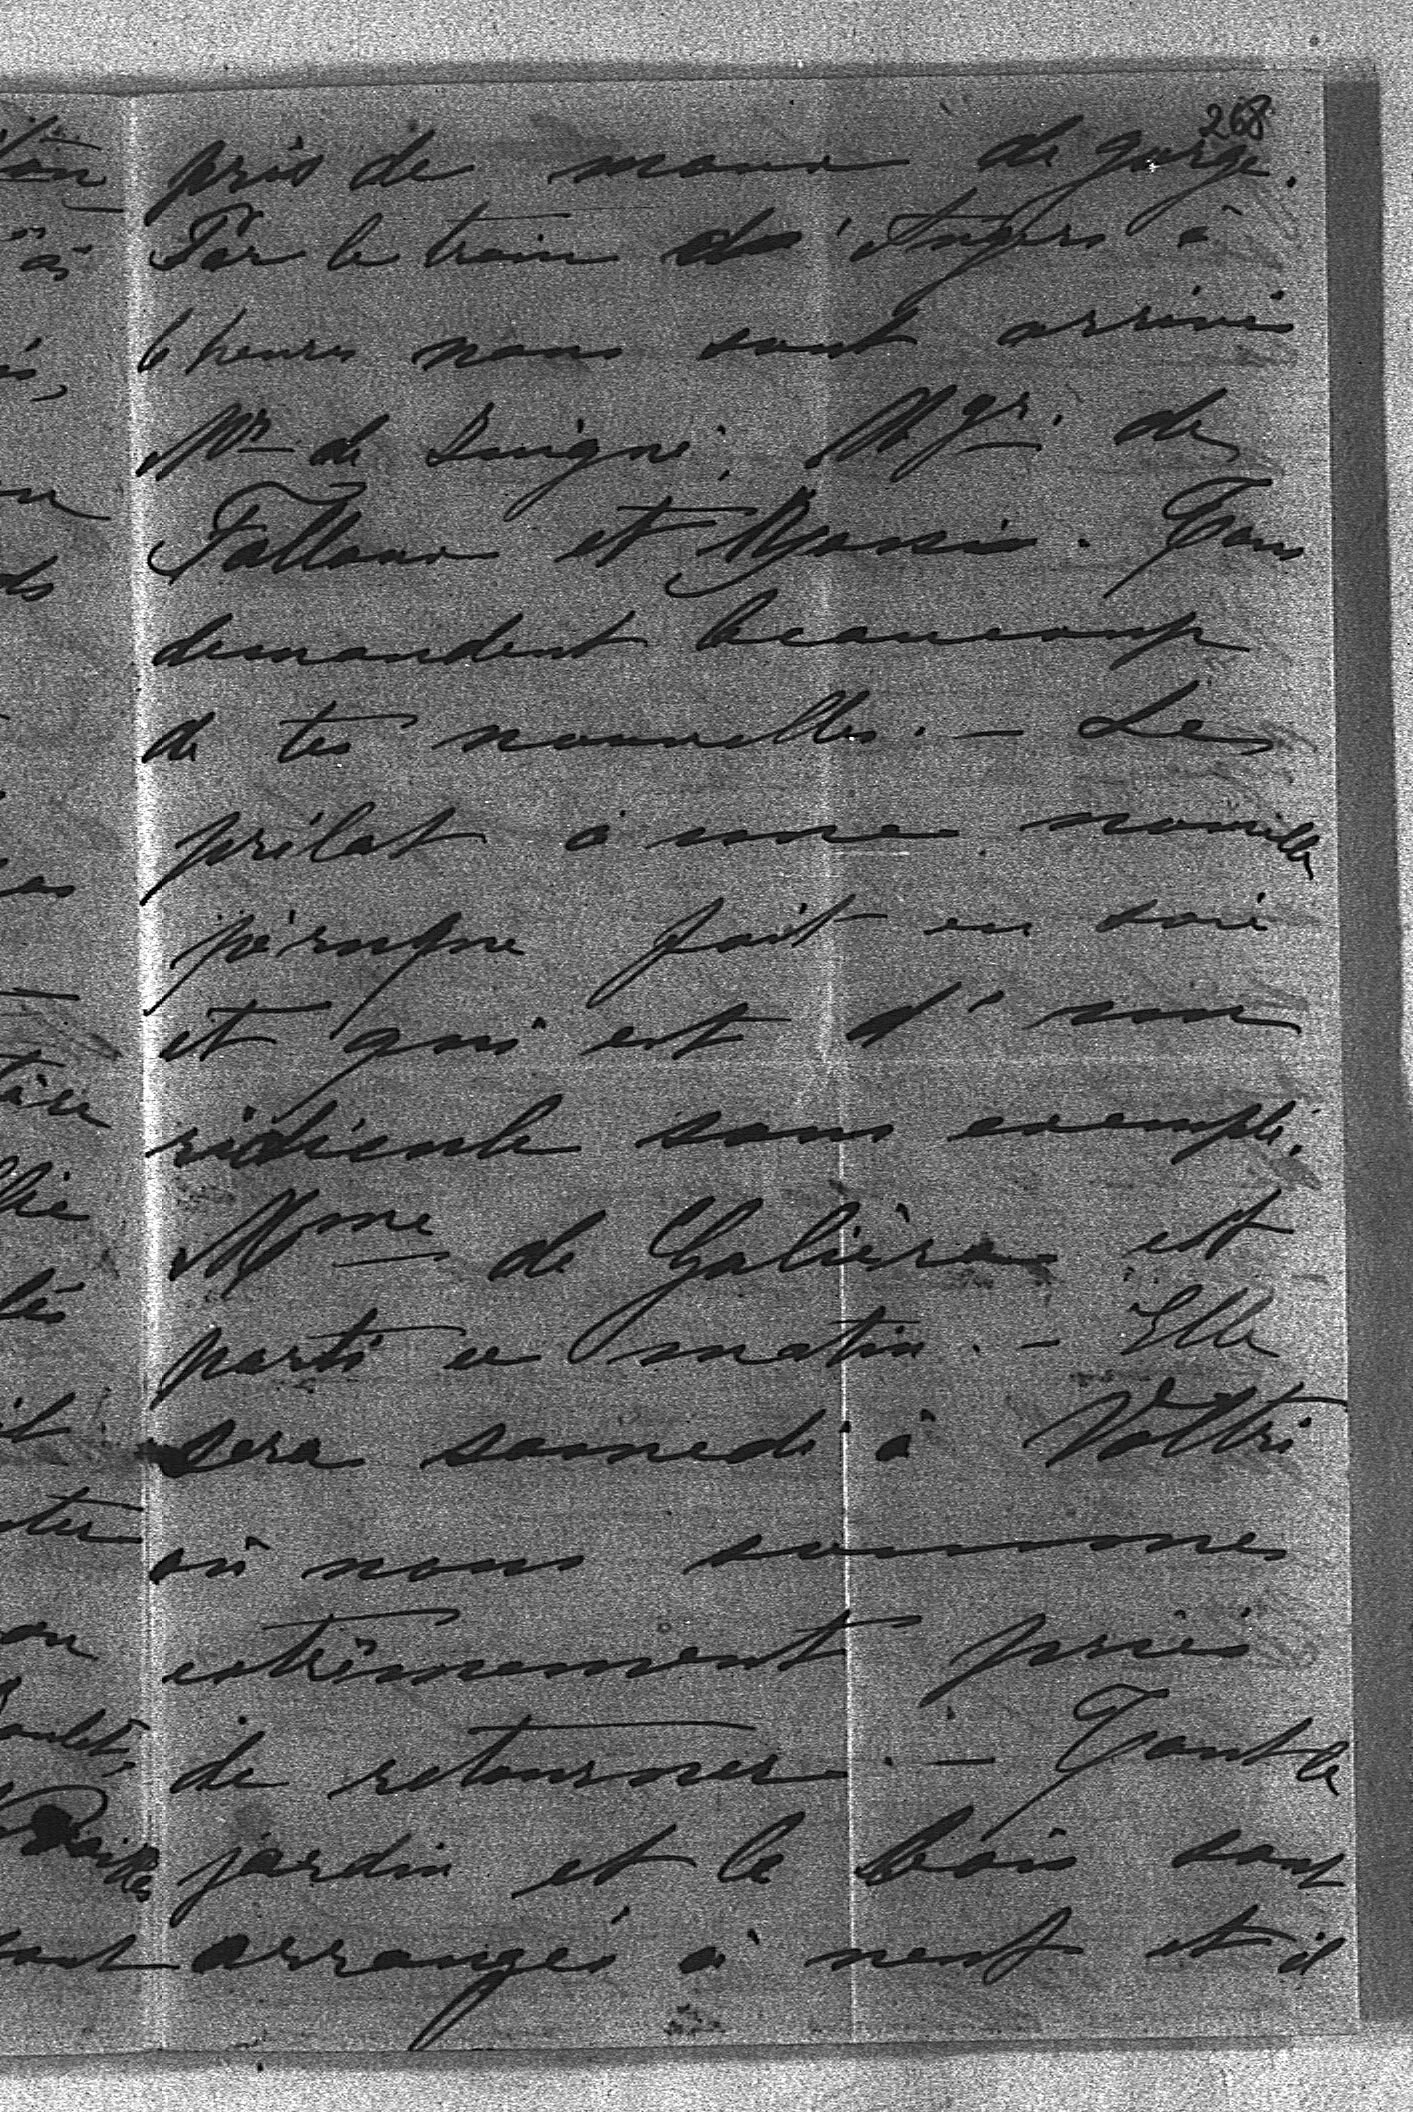 268
pris de maux de gorge.
Par le train d'Angers à
6 heures nous sont arrivés
Mr de Guigné, Mgr. de
Falloux et Massin. Tous
demandent beaucoup
de tes nouvelles. - Le
prélat à une nouvelle
péruque fait en soie
et qui est d'un
ridicule sans exemple.
Mme de Galiera est
parti ce matin. - Elle
sera samedi à Voltri
où nous sommes
extrêmement priés
de retourner. - Tout le
jardin et le bois sont
arrangés à neuf et il